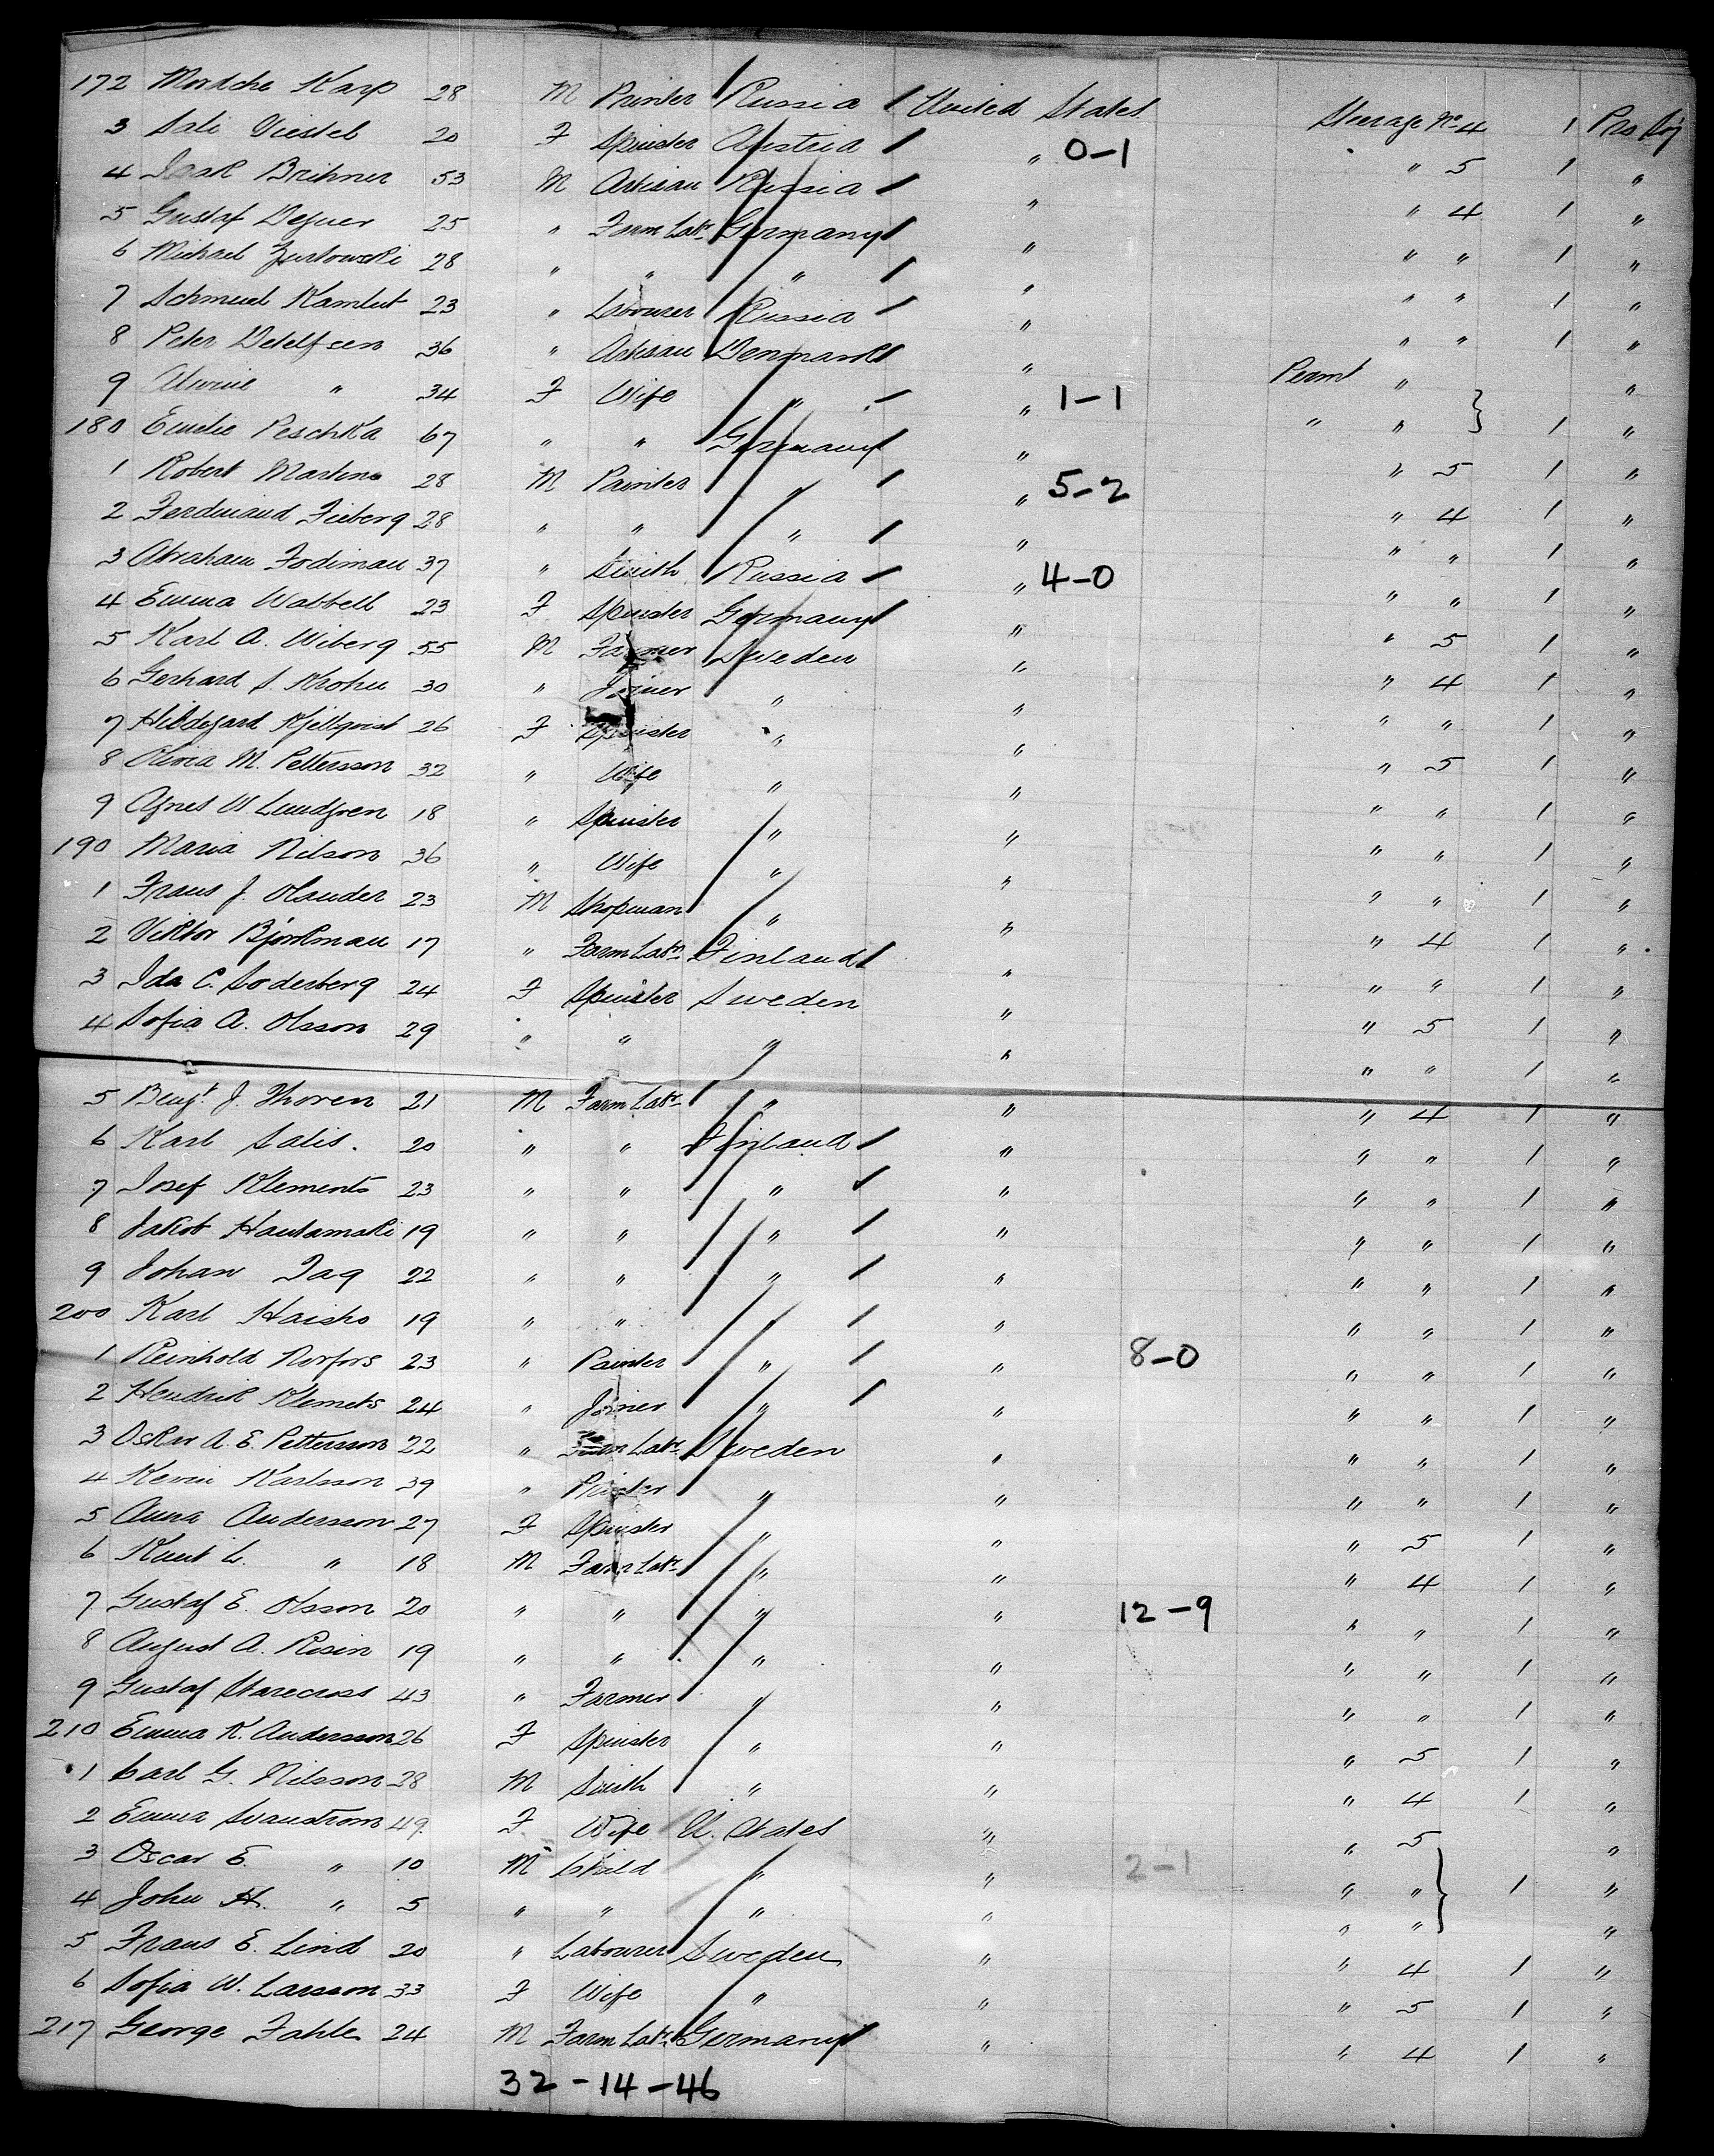 172 Mordche Karp 28 M Printer Russia United States Steerage No 4 1 Pro Soj
3 Sali Viestel 20 F Spinster Austria " 0-1 " 5 1 "
4 Isak Brikner 53 M Artisan Russia " " 4 1 "
5 Gustaf Degner 25 " Farm Labr Germany " " " 1 "
6 Michael Zurkowski 28 " " " " " " 1 "
7 Schmuel Kamlut 23 " Labourer Russia " " " 1 "
8 Peter Detelfsen 36 " Artisan Denmark " Permt " "
9 Alwine " 34 F Wife " " 1-1 " " 1 "
180 Emilie Peschka 67 " " Germany " " 5 1 "
1 Robert Martens 28 M Painter " " 5-2 " 4 1 "
2 Ferdinand Fieberg 28 " " " " " " 1 "
3 Abraham Fodiman 37 " Smith Russia " 4-0 " " 1 "
4 Emma Wabbell 23 F Spinster Germany " " 5 1 "
5 Karl A. Wiberg 55 M Farmer Sweden " " 4 1 "
6 Gerhard S. Krohn 30 " Joiner " " " " 1 "
7 Hildegard Kjellqvist 26 F Spinster " " " 5 1 "
8 Olivia M. Pettersson 32 " Wife " " " " 1 "
9 Agnes W Lundgren 18 " Spinster " " " " 1 "
190 Maria Nilson 36 " Wife " " " " 1 "
1 Frans J. Olander 23 M Shopman " " " 4 1 "
2 Viktor Björkman 17 " Farm Labr Finland " " " 1 "
3 Ida C. Soderberg 24 F Spinster Sweden " " 5 1 "
4 Sofia A. Olsson 29 " " " " " " 1 "
5 Bengt J. Thoren 21 M Farm Labr " " " 4 1 "
6 Karl Salis. 20 " " Finland " " " 1 "
7 Josef Klements 23 " " " " " " 1 "
8 Jakob Hautamaki 19 " " " " " " 1 "
9 Johan Jag 22 " " " " " " 1 "
200 Karl Haisho 19 " " " " " 1 "
1 Reinhold Rorfors 23 " Painter " " 8-0 " " 1 "
2 Hendrik Klemets 24 " Joiner " " " " 1 "
3 Oskar A. E. Pettersson 22 " Farm Labr Sweden " " " 1 "
4 Karlsson 39 " Printer " " " " 1 "
5 Anna Andersson 27 F Spinster " " " 5 1 "
6 Knut L. " 18 M Farm Labr " " " 4 1 "
7 Gustaf E. Olsson 20 " " " " 12-9 " " 1 "
8 August A. Risin 19 " " " " " " 1 "
9 Gustaf Starecross 43 " Farmer " " " " 1 "
210 Emma K. Andersson 26 F Spinster " " " 5 1 "
1 Carl G. Nilsson 28 M Smith " " " 4 1 "
2 Emma Svanstrom 49 F Wife U. States " " 5 "
3 Oscar E. " 10 M Child " " 2-1 " " 1 "
4 John H. " 5 " " " " " " "
5 Frans E. Lind 20 " Labourer Sweden " " 4 1 "
6 Sofia W. Larsson 33 F Wife " " " 5 1 "
217 George Fahle 24 M Farm Labr Germany " " 4 1 "
32-14-46